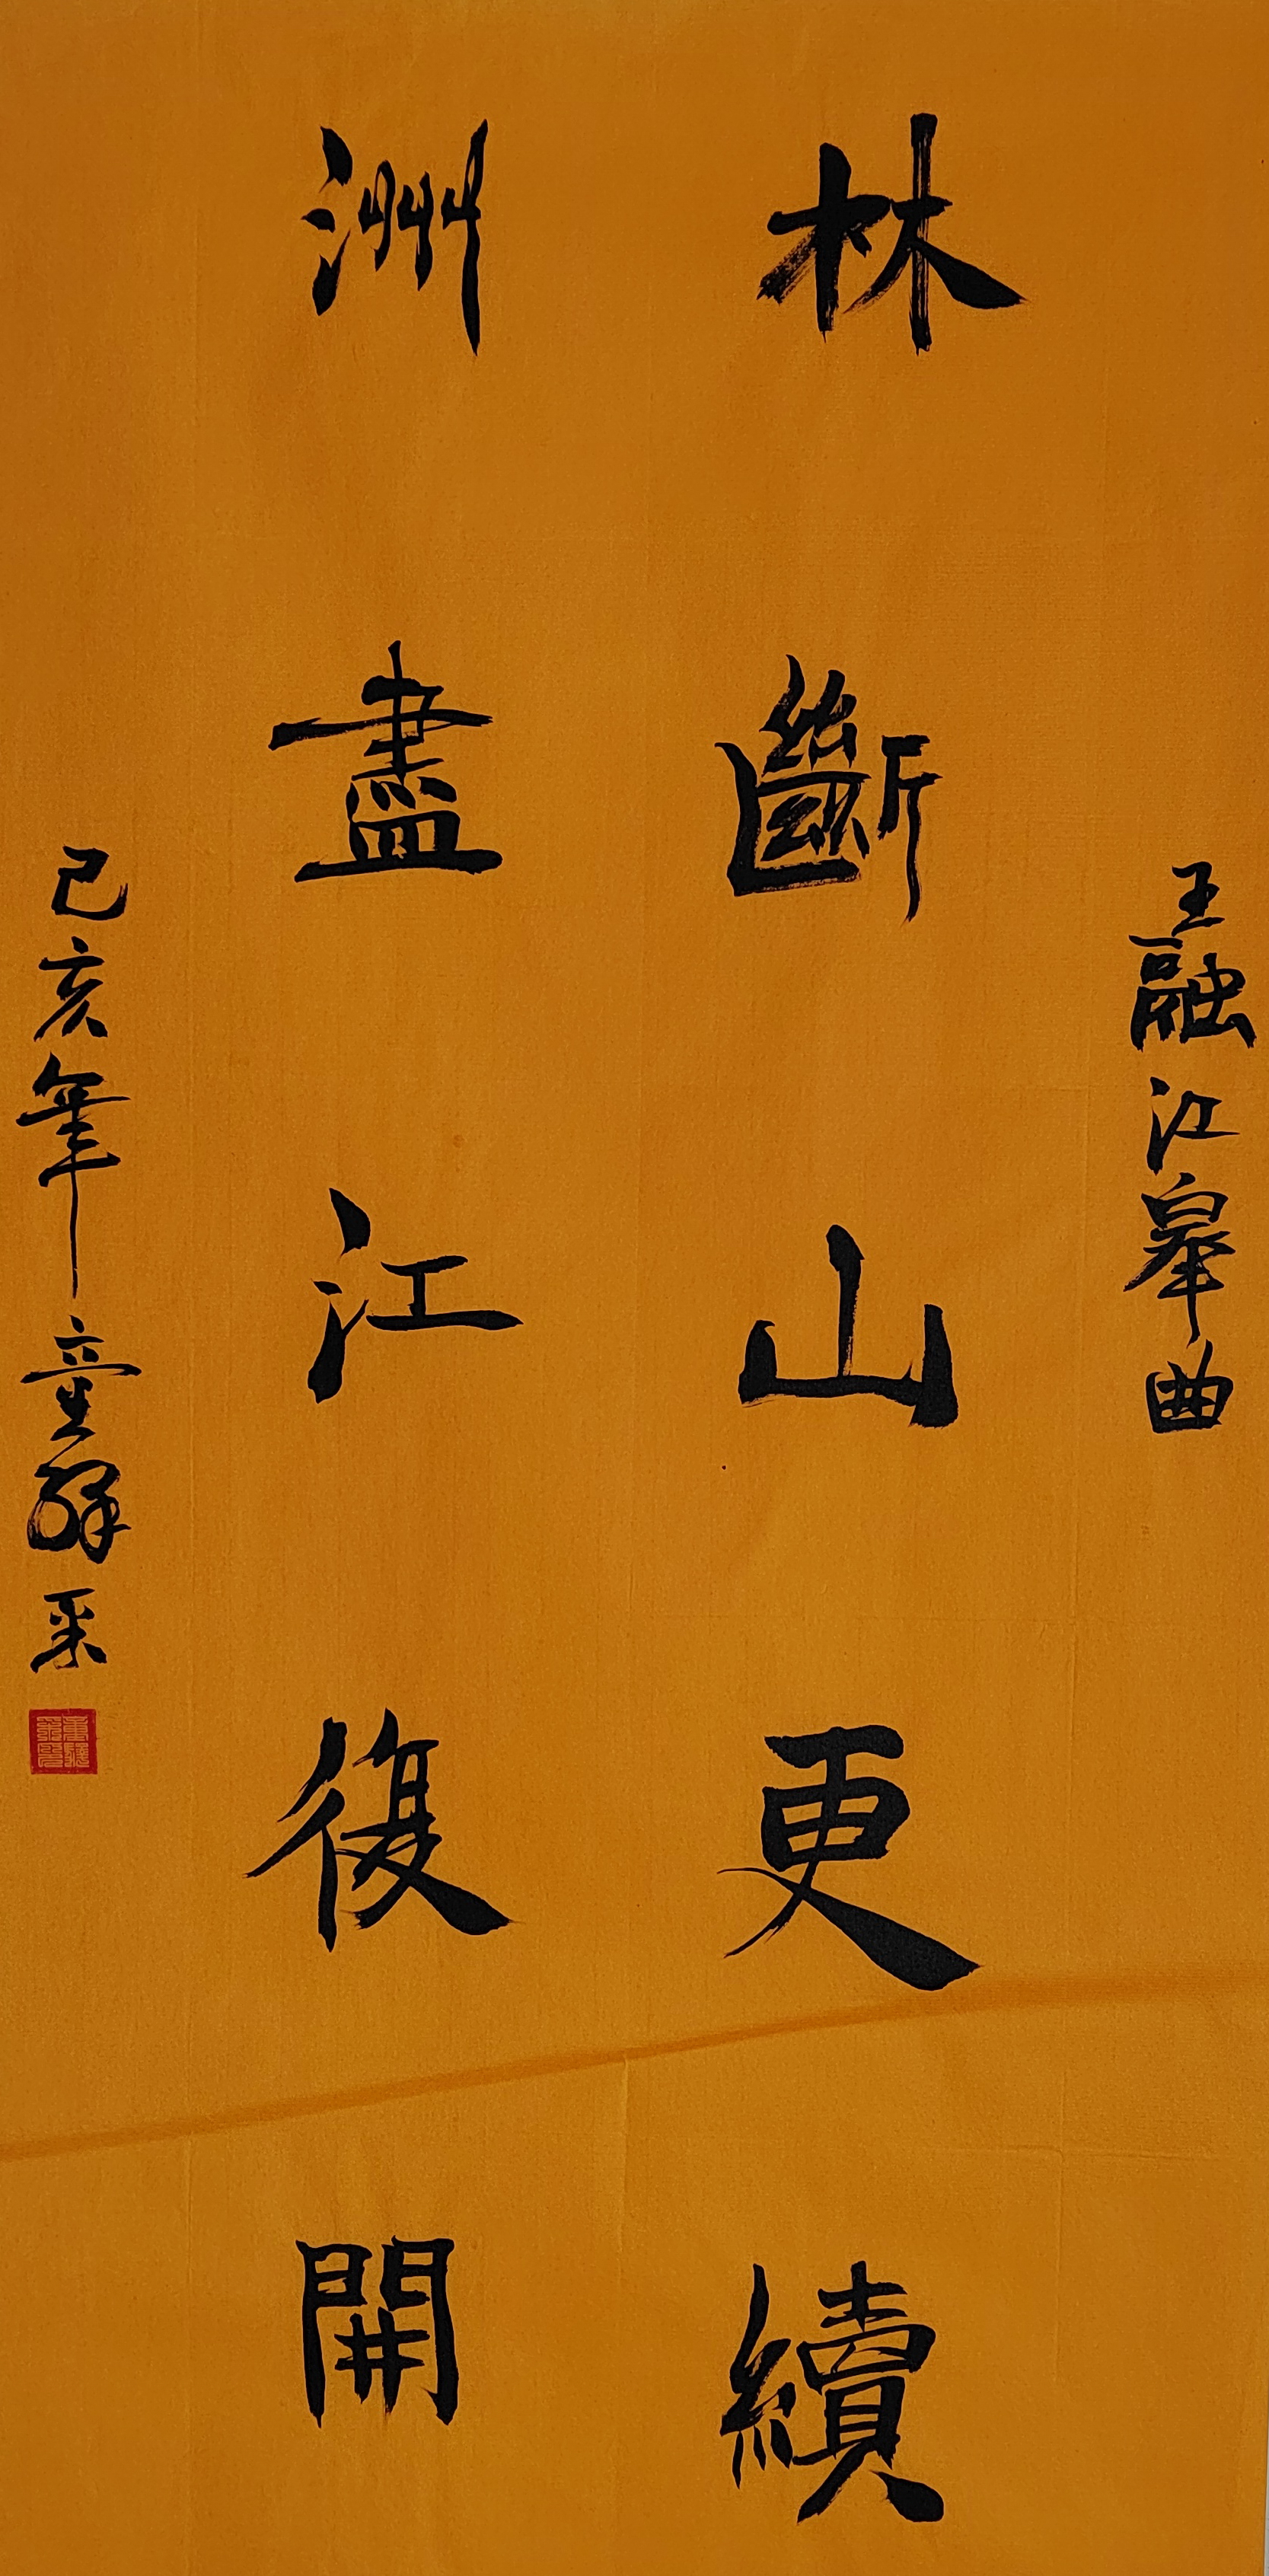 王融江皋曲
林斷山更續
洲盡江復開
己亥年童繹采